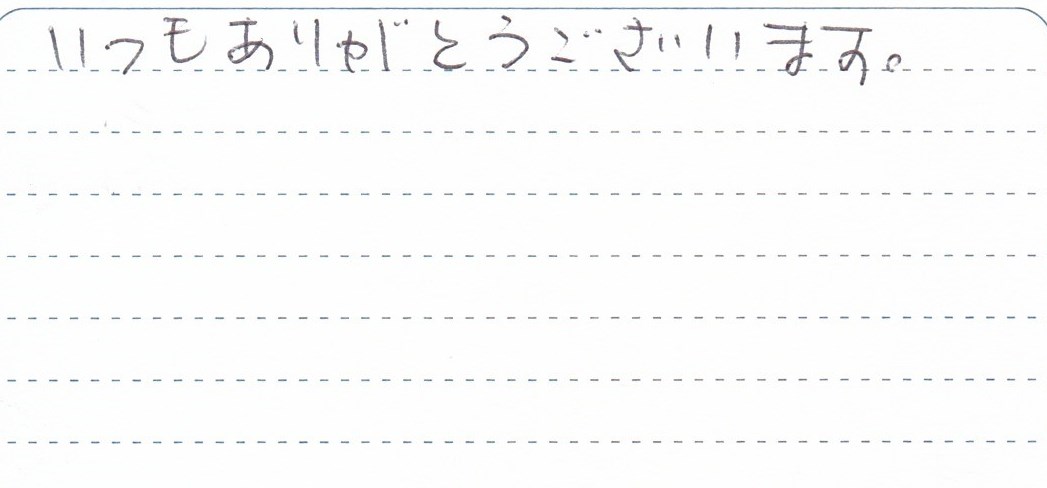 いつもありがとうございます。